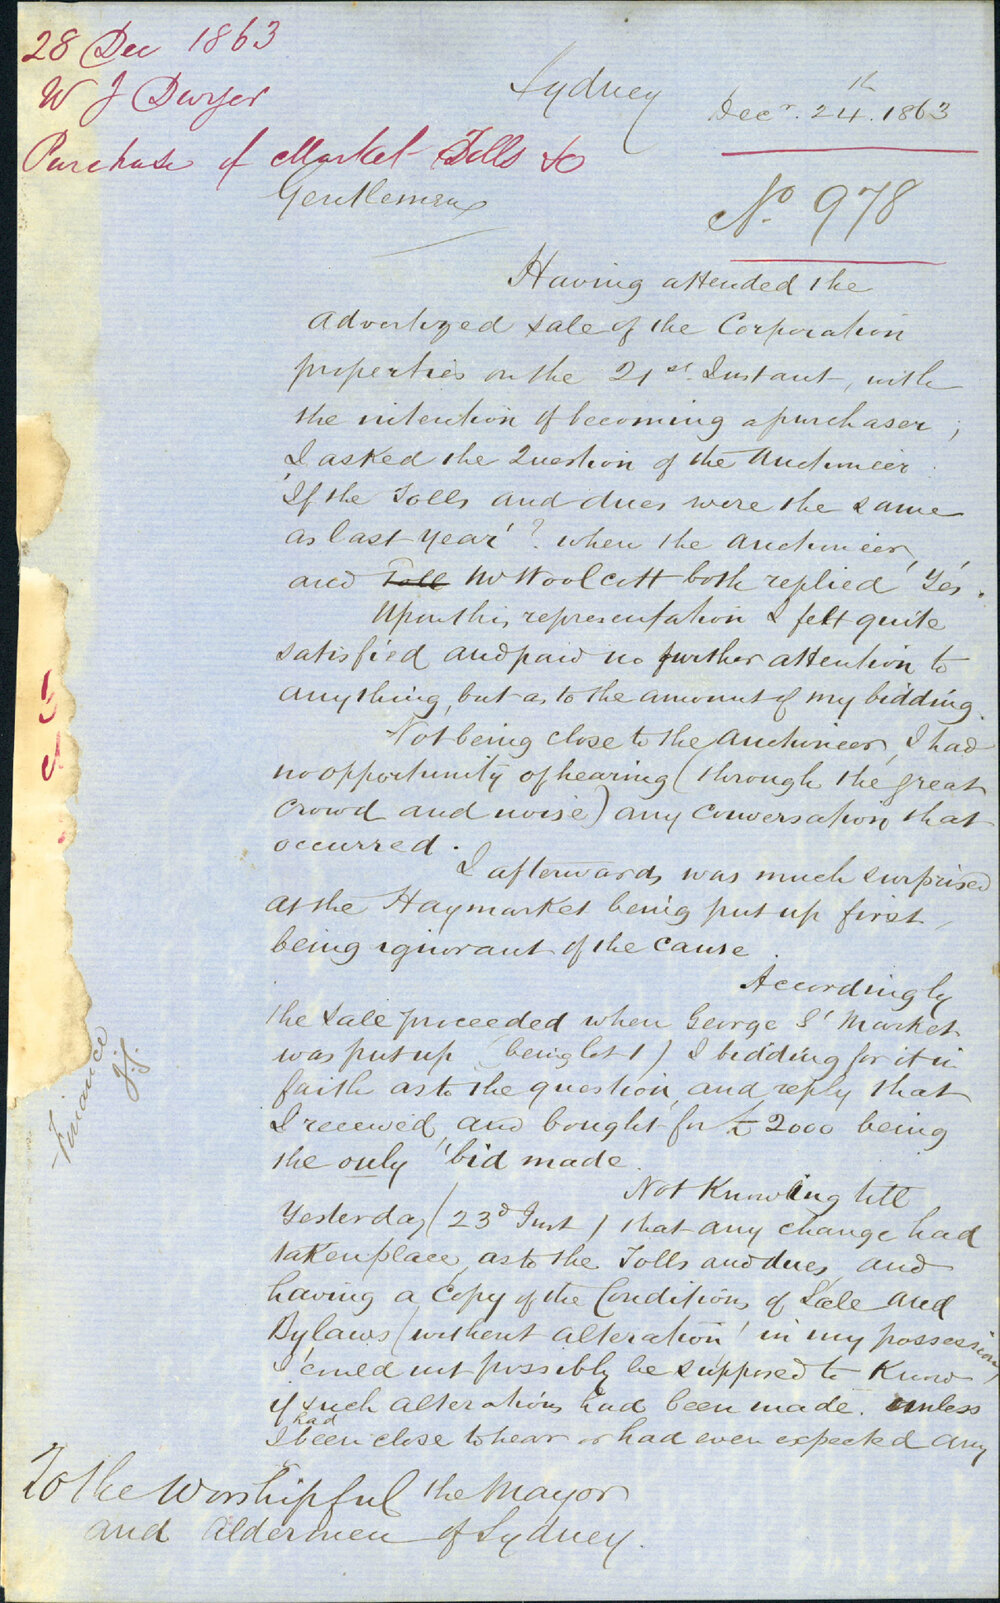 28 Dec 1863
W J Dwyer
Purchase of Market Tolls &c
Sydney Decr. 24th. 1863
No. 978
Gentlemen
Having attended the
advertized sale of the Corporation
properties on the 21st. Instant, with
the intention of becoming a purchaser;
I asked the Question of the Auctioneer
'If the Tolls and dues were the same
as last year'? when the Auctioneer,
and Toll Mr Woolcott both replied 'Yes.
Upon this representation I felt quite
satisfied and paid no further attention to
anything, but as to the amount of my bidding.
Not being close to the Auctioneer, I had
no opportunity of hearing (through the great
crowd and noise) any conversation that
occurred.
I afterwards was much surprised
at the Haymarket being put up first,
being ignorant of the cause
Accordingly
the sale proceeded when George St Market
was put up (being lot 1) I bidding for it in
faith as to the question, and reply that
I received, and bought for £2000 being
the only 'bid made.
Not Knowing till
Yesterday (23d Inst) that any change had
taken place, as to the Tolls and dues, and
having a Copy of the Conditions of Sale and
Bylaws (without alteration' in my possession)
I could not possibly be supposed to Know
if such alterations had been made. unless
I had been close to hear or had even expected any
To the Worshipful the Mayor
and Aldermen of Sydney.
Finance
J.J.